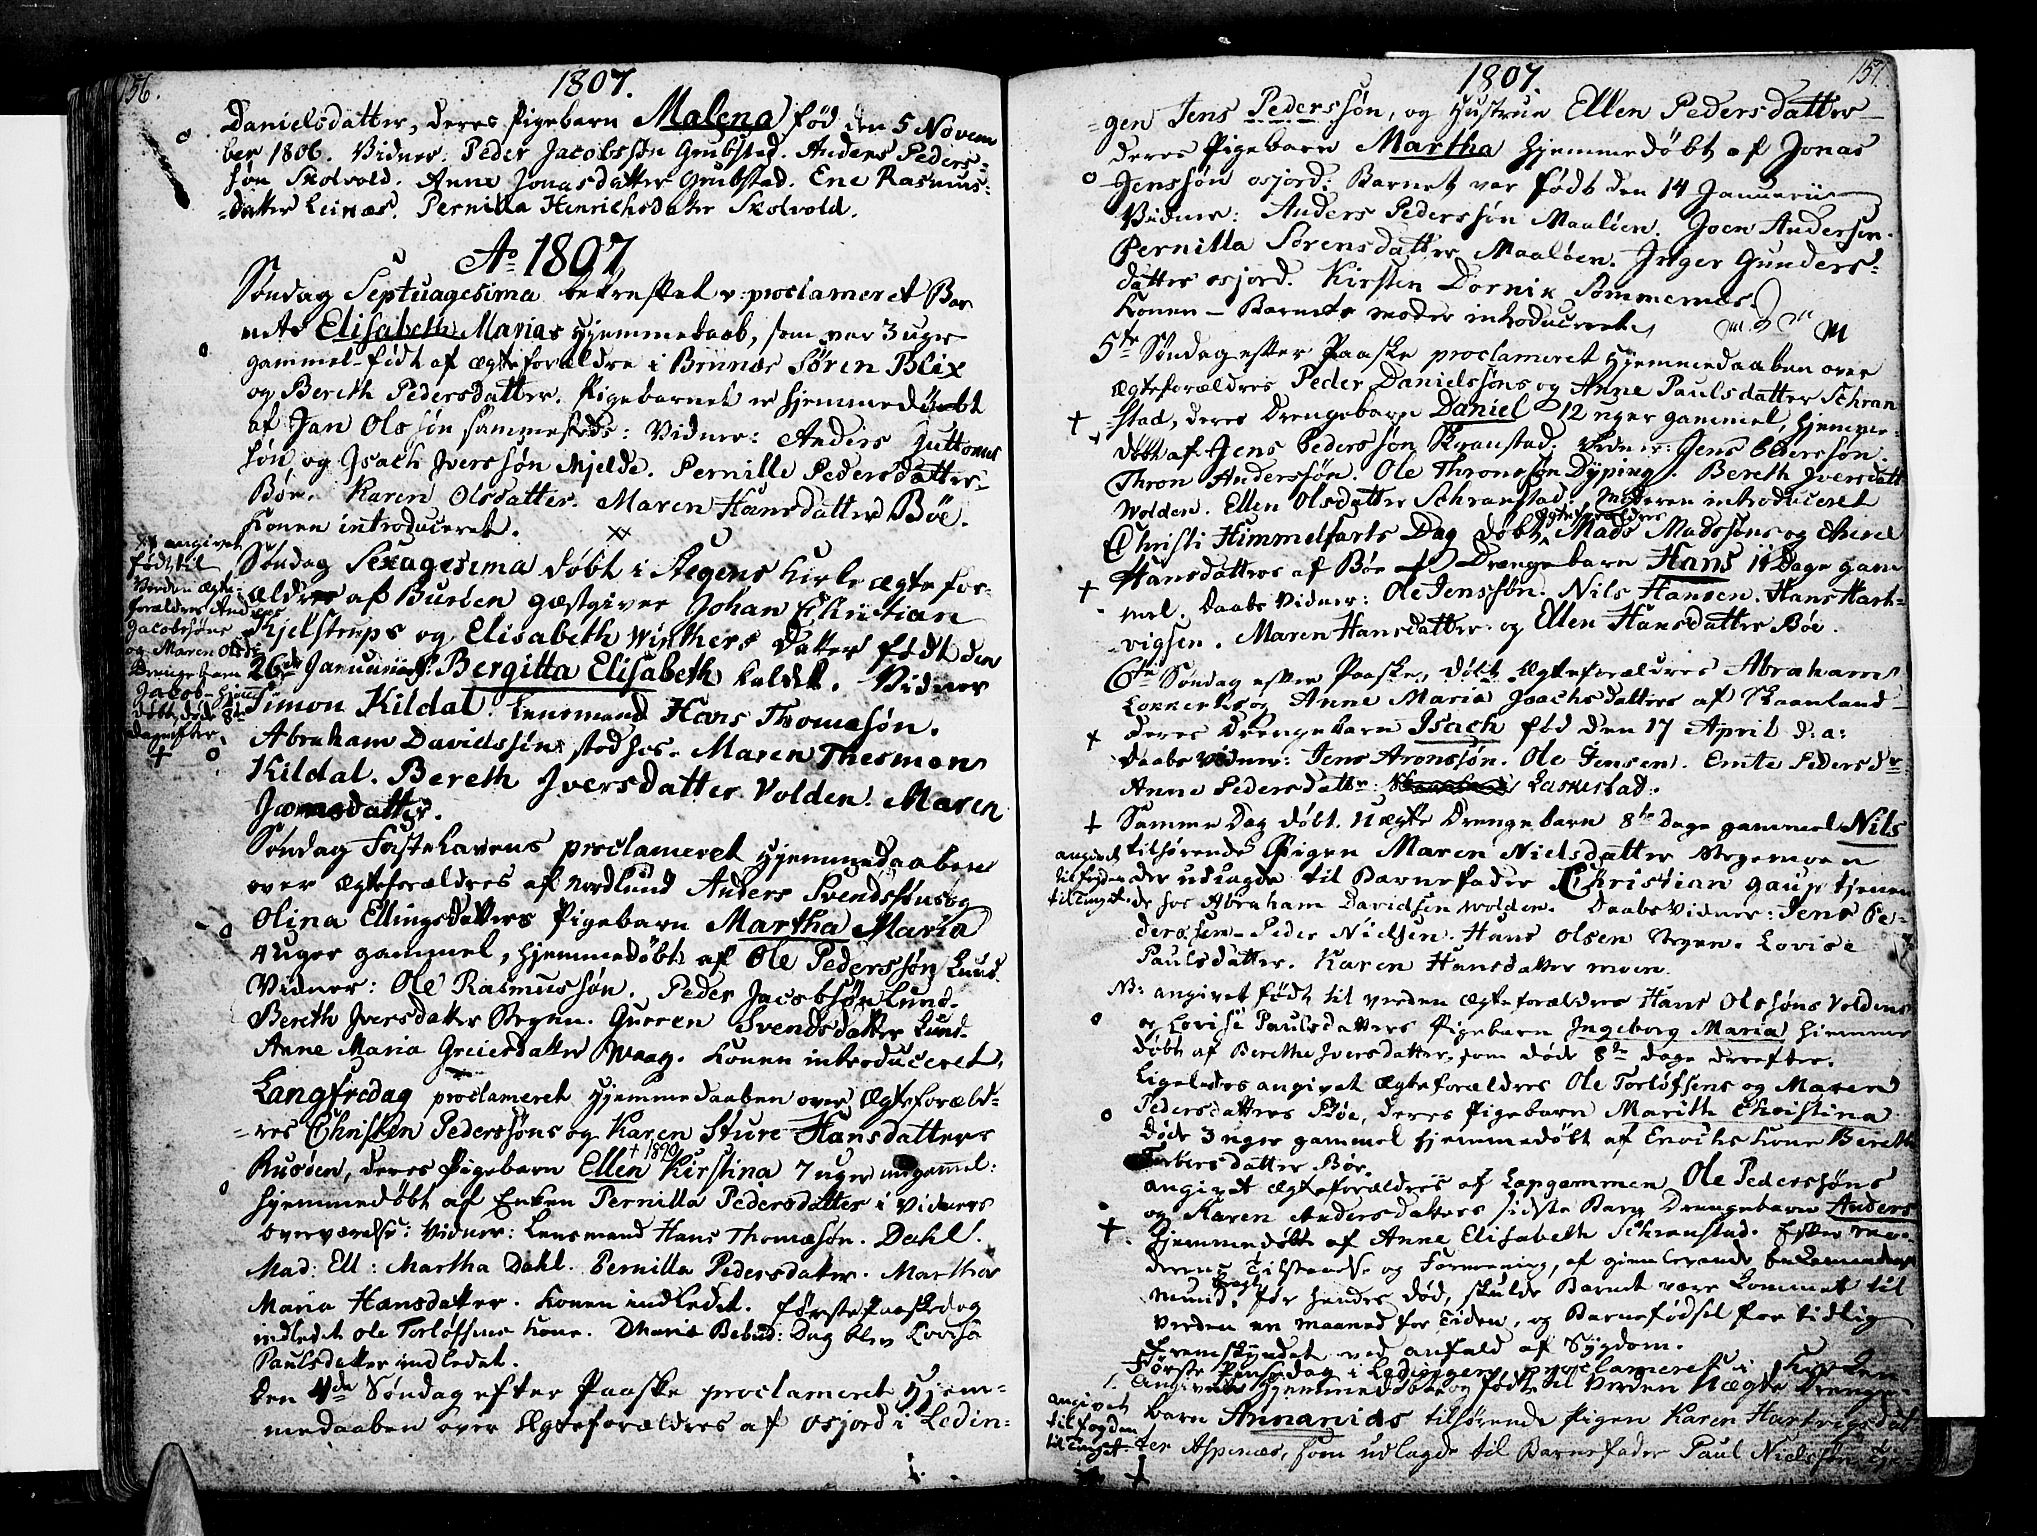 156.
1807.
Danielsdatter, deres Pigebarn Malena fød den 5 Novem
ber 1806. Vidner: Peder Jacobssøn Grubstad. Anders Peders-
søn Skolvold. Anne Jonasdatter Grubstad. Ene Rasmus-
-datter Leines. Pernilla Henrichsdater Skolvold.
Ao 1807
Søndag Septuagesima bekreftet v: proclameret Bar
nets Elisabeth Marias Hjemmedaab, som var 3 uger
gammel født af Ægteforældre i Brunæs Søren Blix
og Bereth Pedersdatter. Pigebarnet er hjemmedøbt
af Jan Olssøn sammesteds: Vidner: Anders Guttorms
søn og Isach Iverssøn Mjelde. Pernille Pedersdatter
Bøe. Karen Olsdatter. Maren Hansdatter Bøe.
Konen introduceret.
Søndag Sexagesima døbt i Stegens Kirke ægtefor-
ældres af Burøen gæstgiver Johan Christian
Thjelstrups og Elisabeth Winthers Datter født den
26de Januarii: Bergitta Elisabeth kaldet. Vidner
Simon Kildal. Lensmand Hans Thomasøn.
Abraham Davidssøn stod hos. Maren Thesmon
Kildal. Bereth Iversdatter Volden. Maren
Joensdatter.
angivet
født til
Verden Ægte-
forældres Andreas
Jacobsøns
og Maren Olsd:
Drengebarn
Jacob hjemme
døbt, døde 8te
dagen efter.
Søndag Fastelavens proclameret Hjemmedaaben
over Ægteforældres af Nordlund Anders Svendssøns og
Olina Ellingsdatters Pigebarn Martha Maria
4 uger gammel, hjemmedøbt af Ole Pederssøn Lund.
Vidner: Ole Rasmussøn. Peder Jacobsøn Lund.
Bereth Iversdatter Stegen. Guren Svendsdatter Lund.
Anne Maria Greiersdatter Waag. Konen introduceret.
Langfredag proclameret Hjemmedaaben over Ægteforæld-
-res Christen Pederssøns og Karen Sture Hansdatters
+ 1890
Rusøen, deres Pigebarn Ellen Kirstina 7 uger ungammel:
hjemmedøbt af Enken Pernilla Pedersdatter i Vidners
overværelse: Vidner: Lensmand Hans Thomasøn. Dahl.
Mad: Ell: Martha Dahl. Pernilla Pedersdater. Martha
Maria Hansdatter. Konen indledet. Første Paaskedag
indledet Ole Torløfsens Kone. Mariæ Bebud: Dag blev Lovisa
Paulsdatter indledet.
Den 4de Søndag efter Paaske proclameret Hjem-
medaaben over Ægteforældres af Osjord i Ledin-
157.
1807.
-gen Jens Pederssøn, og Hustrue Ellen Pedersdatter
deres Pigebarn Martha hjemmedøbt af Jonas
Jenssøn Osjord: Barnet var født den 14 Januarii
Vidner: Anders Pederssøn Maaløen. Joen Andersen.
Pernilla Sørensdatter Maaløen. Inger Gunders-
datter Osjord. Kirsten Dornix Sommernæs.
Konen - Barnets Moder introduceret.
5te Søndag efter Paaske proclameret Hjemmedaaben over
Ægteforældres Peder Danielssøns og Anne Paulsdatter Schran
stad, deres Drengebarn Daniel 12 uger gammel, hjemme-
døbt af Jens Pederssøn Skranstad. Vidner: Jens Pedersøn.
Thron Anderssøn. Ole Thronssøn Dyping. Bereth Iversdatt
Wolden. Ellen Olsdatter Schranstad. Moderen introduceret
Christi Himmelfarts Dag døbt Ægteforældres Mads Madssøns og
Hansdatters af Bøe Drengebarn Hans 11 Dage gam
mel. Daabs Vidner: Ole Jenssøn. Nils Hansen. Hans Hart-
vigsen. Maren Hansdatter og Ellen Hansdatter Bøe.
6te Søndag efter Paaske, døbt Ægteforældres Abrahams
og Anne Maria Joachsdatters af Skaanland
deres Drengebarn Isach fød den 17 April d: a:
Daabs Vidner: Jens Aronssøn. Ole Jensen. Emte Pedersdr
Anne Pedersdatter Laskestad.
Samme Dag døbt Uægte Drengebarn 8te Dage gammel Nils
tilhørende Pigen Maren Nielsdatter Stegemoen
der udlagde til Barnefader Christian Gaup tienen
de hos Abraham Davidsen Wolden. Daabs Vidner: Jens Pe-
dersøn. Peder Nielsen. Hans Olsen Stegen. Lovise
Paulsdatter. Karen Hansdatter Moen.
angivet
til Fogden
til Tinget
NB: angivet født til Verden Ægteforældres Hans Olssøns Voldens
og Lovise Paulsdatters Pigebarn Ingeborg Maria hjemme
døbt af Berethe Iversdatter, som døde 8te Dage derefter.
Ligeledes angivet Ægteforældres Ole Torløfsens og Maren
Pedersdatters Bøe, deres Pigebarn Marith Christina
døde 3 uger gammel hjemmedøbt af Enochs Kone Bereth
datter Bøe.
angivet Ægteforældres af Lapgammen Ole Pederssøns
og Karen Andersdatters sidste Barn Drengebarn Anders
hjemmedøbt af Anne Elisabeth Schranstad. Efter Mo-
derens Tilstaaelse og Formening, af gienlevende
mund, før hendes død, skulde Barnet være kommet til
Verden en Maaned for Tiden, og Barnefødsel for tidlig
fremskyndet ved anfald af Sygdom.
Første Pinsedag i Lødingen proclameret i Kirken
Angivet Hjemmedøbte og født til Verden Uægte Drenge-
barn Annanias tilhørende Pigen Karen Hartvigsdat
ter Aspenæs, som udlagde til Barnefader Paul Nielssøn
angivet
til Fogden
til Tinget